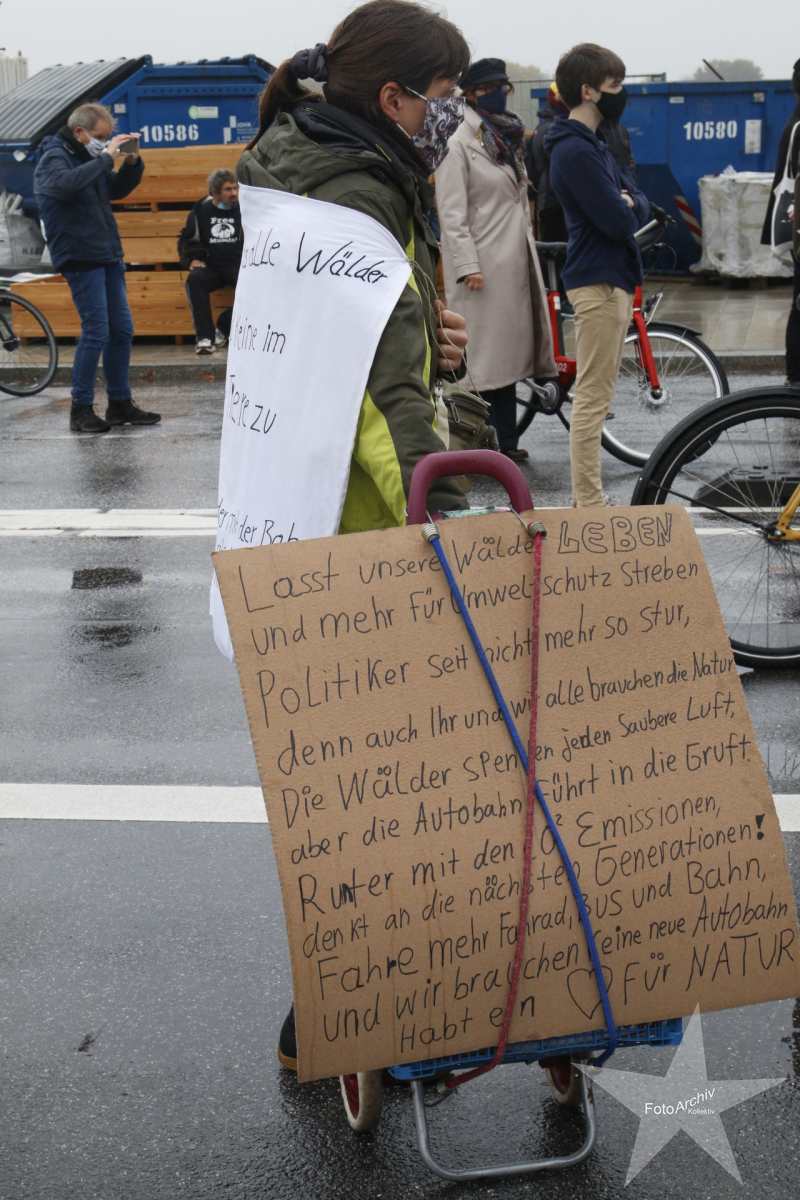 10586
10580
Free
Mumia
alle Wälder
im
zu
der Bah
Lasst unsere Wälder LEBEN
und mehr Für Umweltschutz Streben
Politiker seit nicht mehr so stur,
denn auch Ihr und wir alle brauchen die Natur
Die Wälder spenden jeden Saubere Luft,
aber die Autobahn Führt in die Gruft.
Runter mit den CO² Emissionen,
denkt an die nächsten Generationen!
Fahre mehr Fahrad, BUS und Bahn,
und wir brauchen keine neue Autobahn
Habt ein ♡ Für NATUR
FotoArchiv
Kollektiv